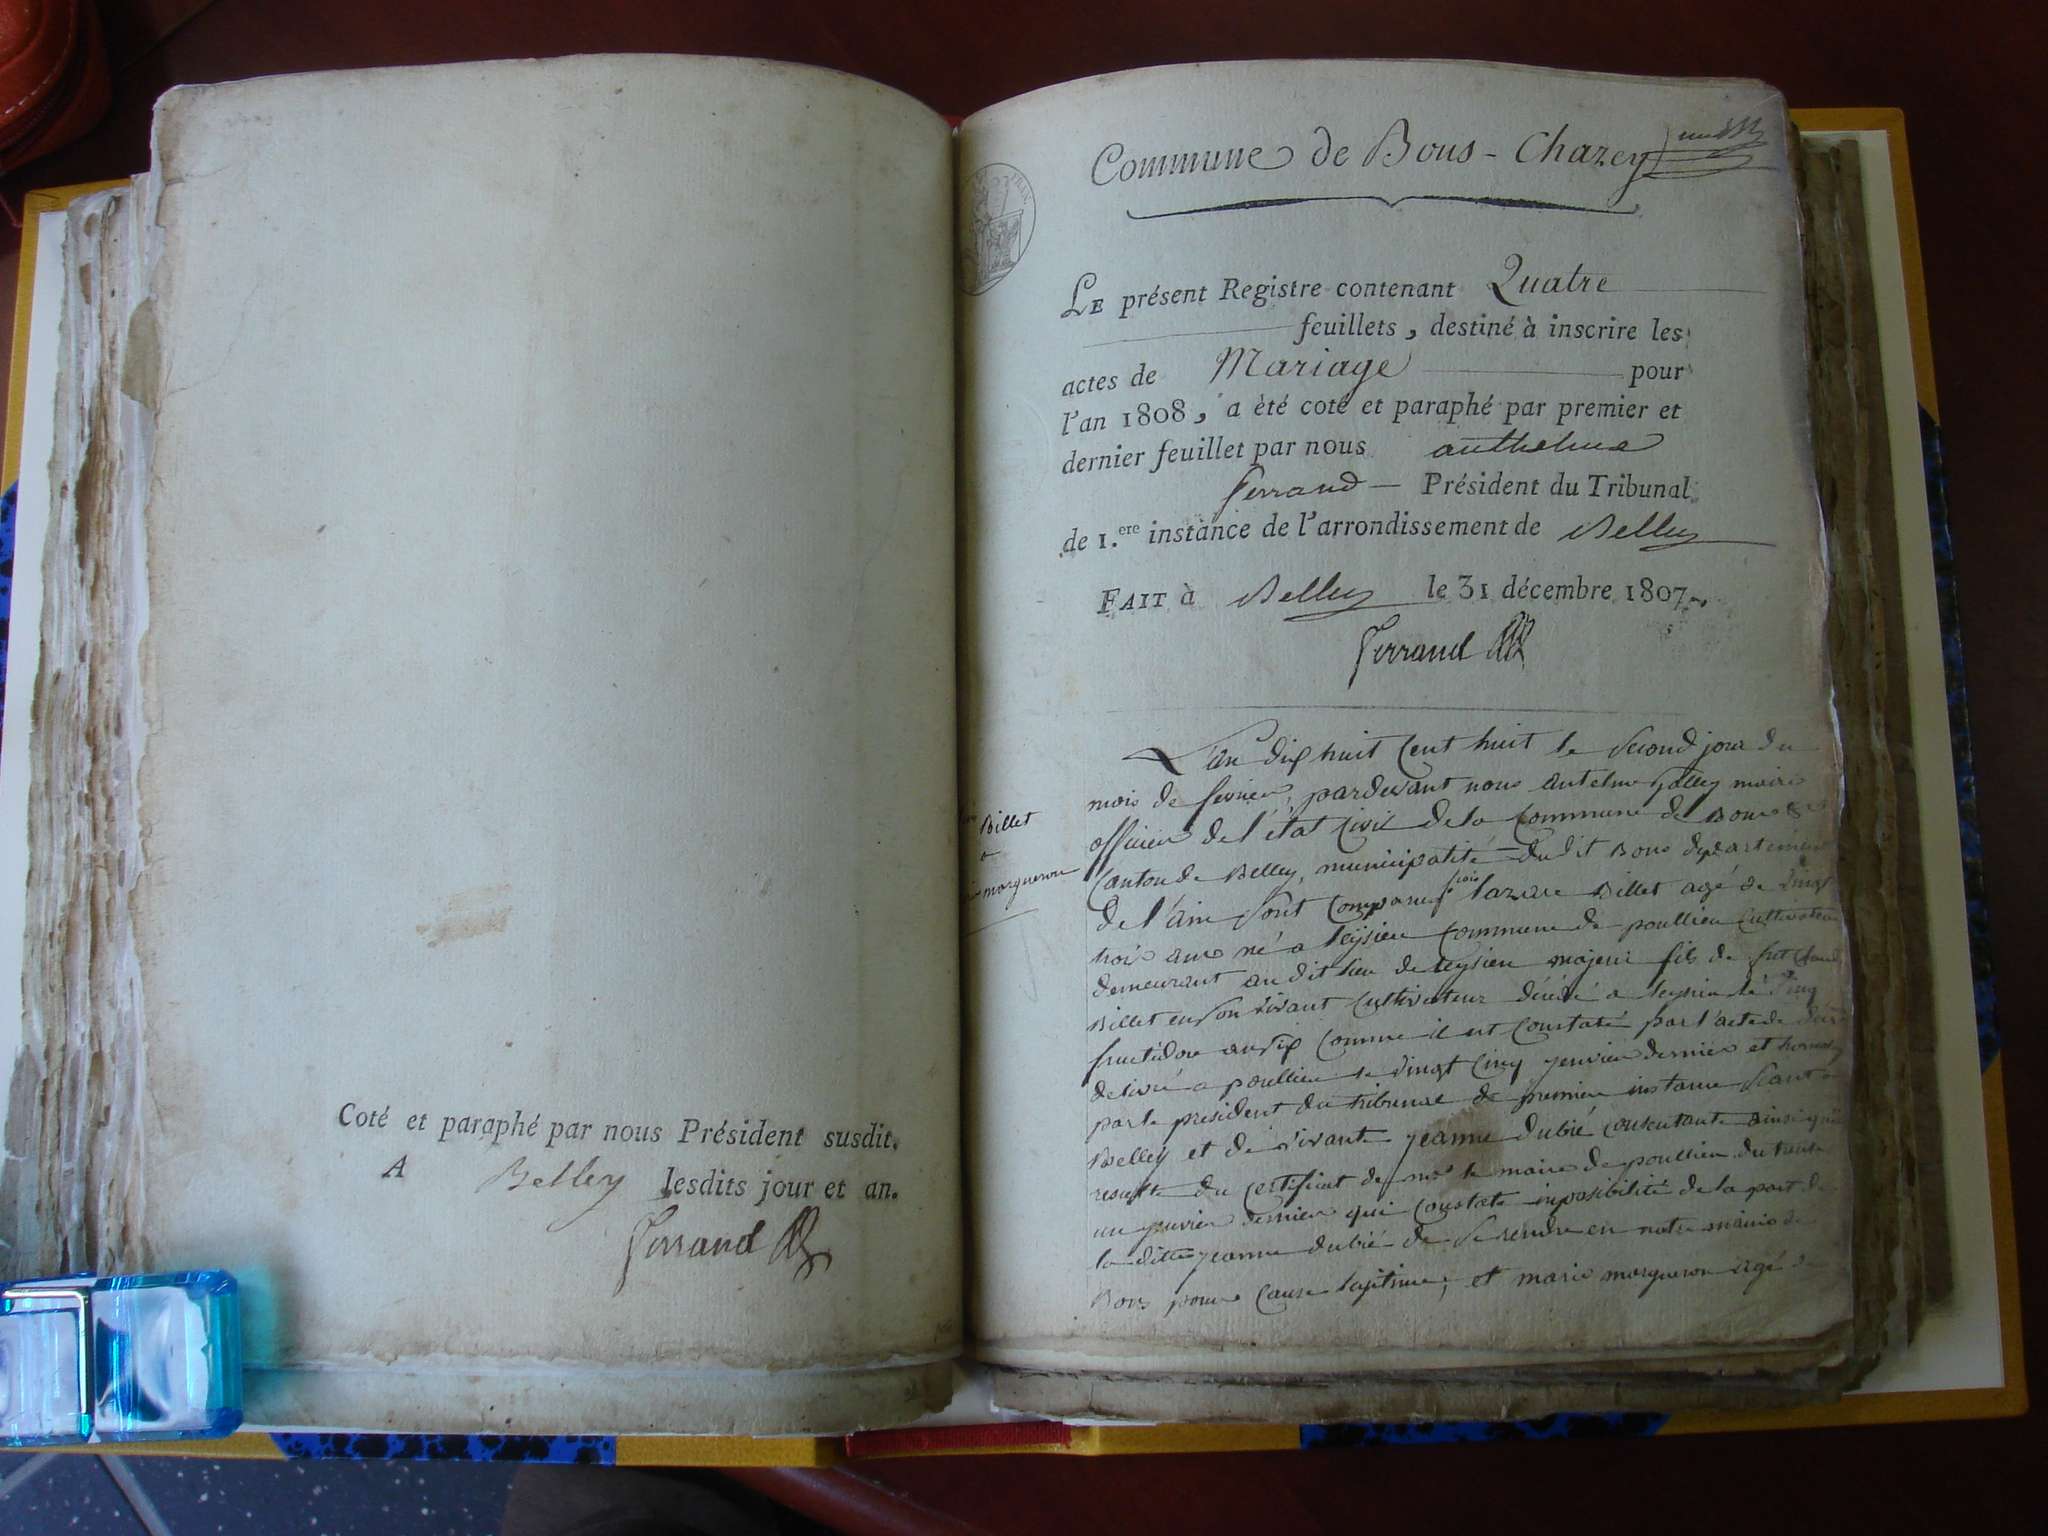 Coté et paraphé par nous Président susdit.
A Belley lesdits jour et an.
Ferrand
Commune de Bons - Chazey
FRAN.
LE présent Registre contenant Quatre
feuillets, destiné à inscrire les
actes de Mariage pour
l'an 1808, a été coté et paraphé par premier et
dernier feuillet par nous anthelme
ferrand Président du Tribunal
de 1.ere instance de l'arrondissement de Belley
FAIT à Belley le 31 décembre 1807.
Ferrand
Billet
morgueron
L'an dix huit Cent huit le Second jour du
mois de fevrier, pardevant nous antelme maire
officier de l'état Civil de la Commune de Bons
Canton de Belley, municipalité dudit Bons departement
de l'ain Sont Comparus fois lazare Billet agé de vingt
trois ans né a leysieu Commune de poullieu Cultivateur
demeurant audit lieu de leysieu majeur fils de
Billet en Son vivant Cultivateur décédé a leysieu le Cinq
fructidor an six Comme il est Constaté par l'acte de
delivré a poullieu le vingt Cinq jenvier dernier et
par le president du tribunal de premiere instance Seant a
Belley et de vivante jeanne dubié consentante ainsi que
resulte du Certificat de mr le maire de poullieu du trente
un jenvier dernier qui Constate inposibilité de la part de
la ditte jeanne dubié de Se rendre en notre mairie de
Bons pour Cause legitime, et marie morgueron agé de